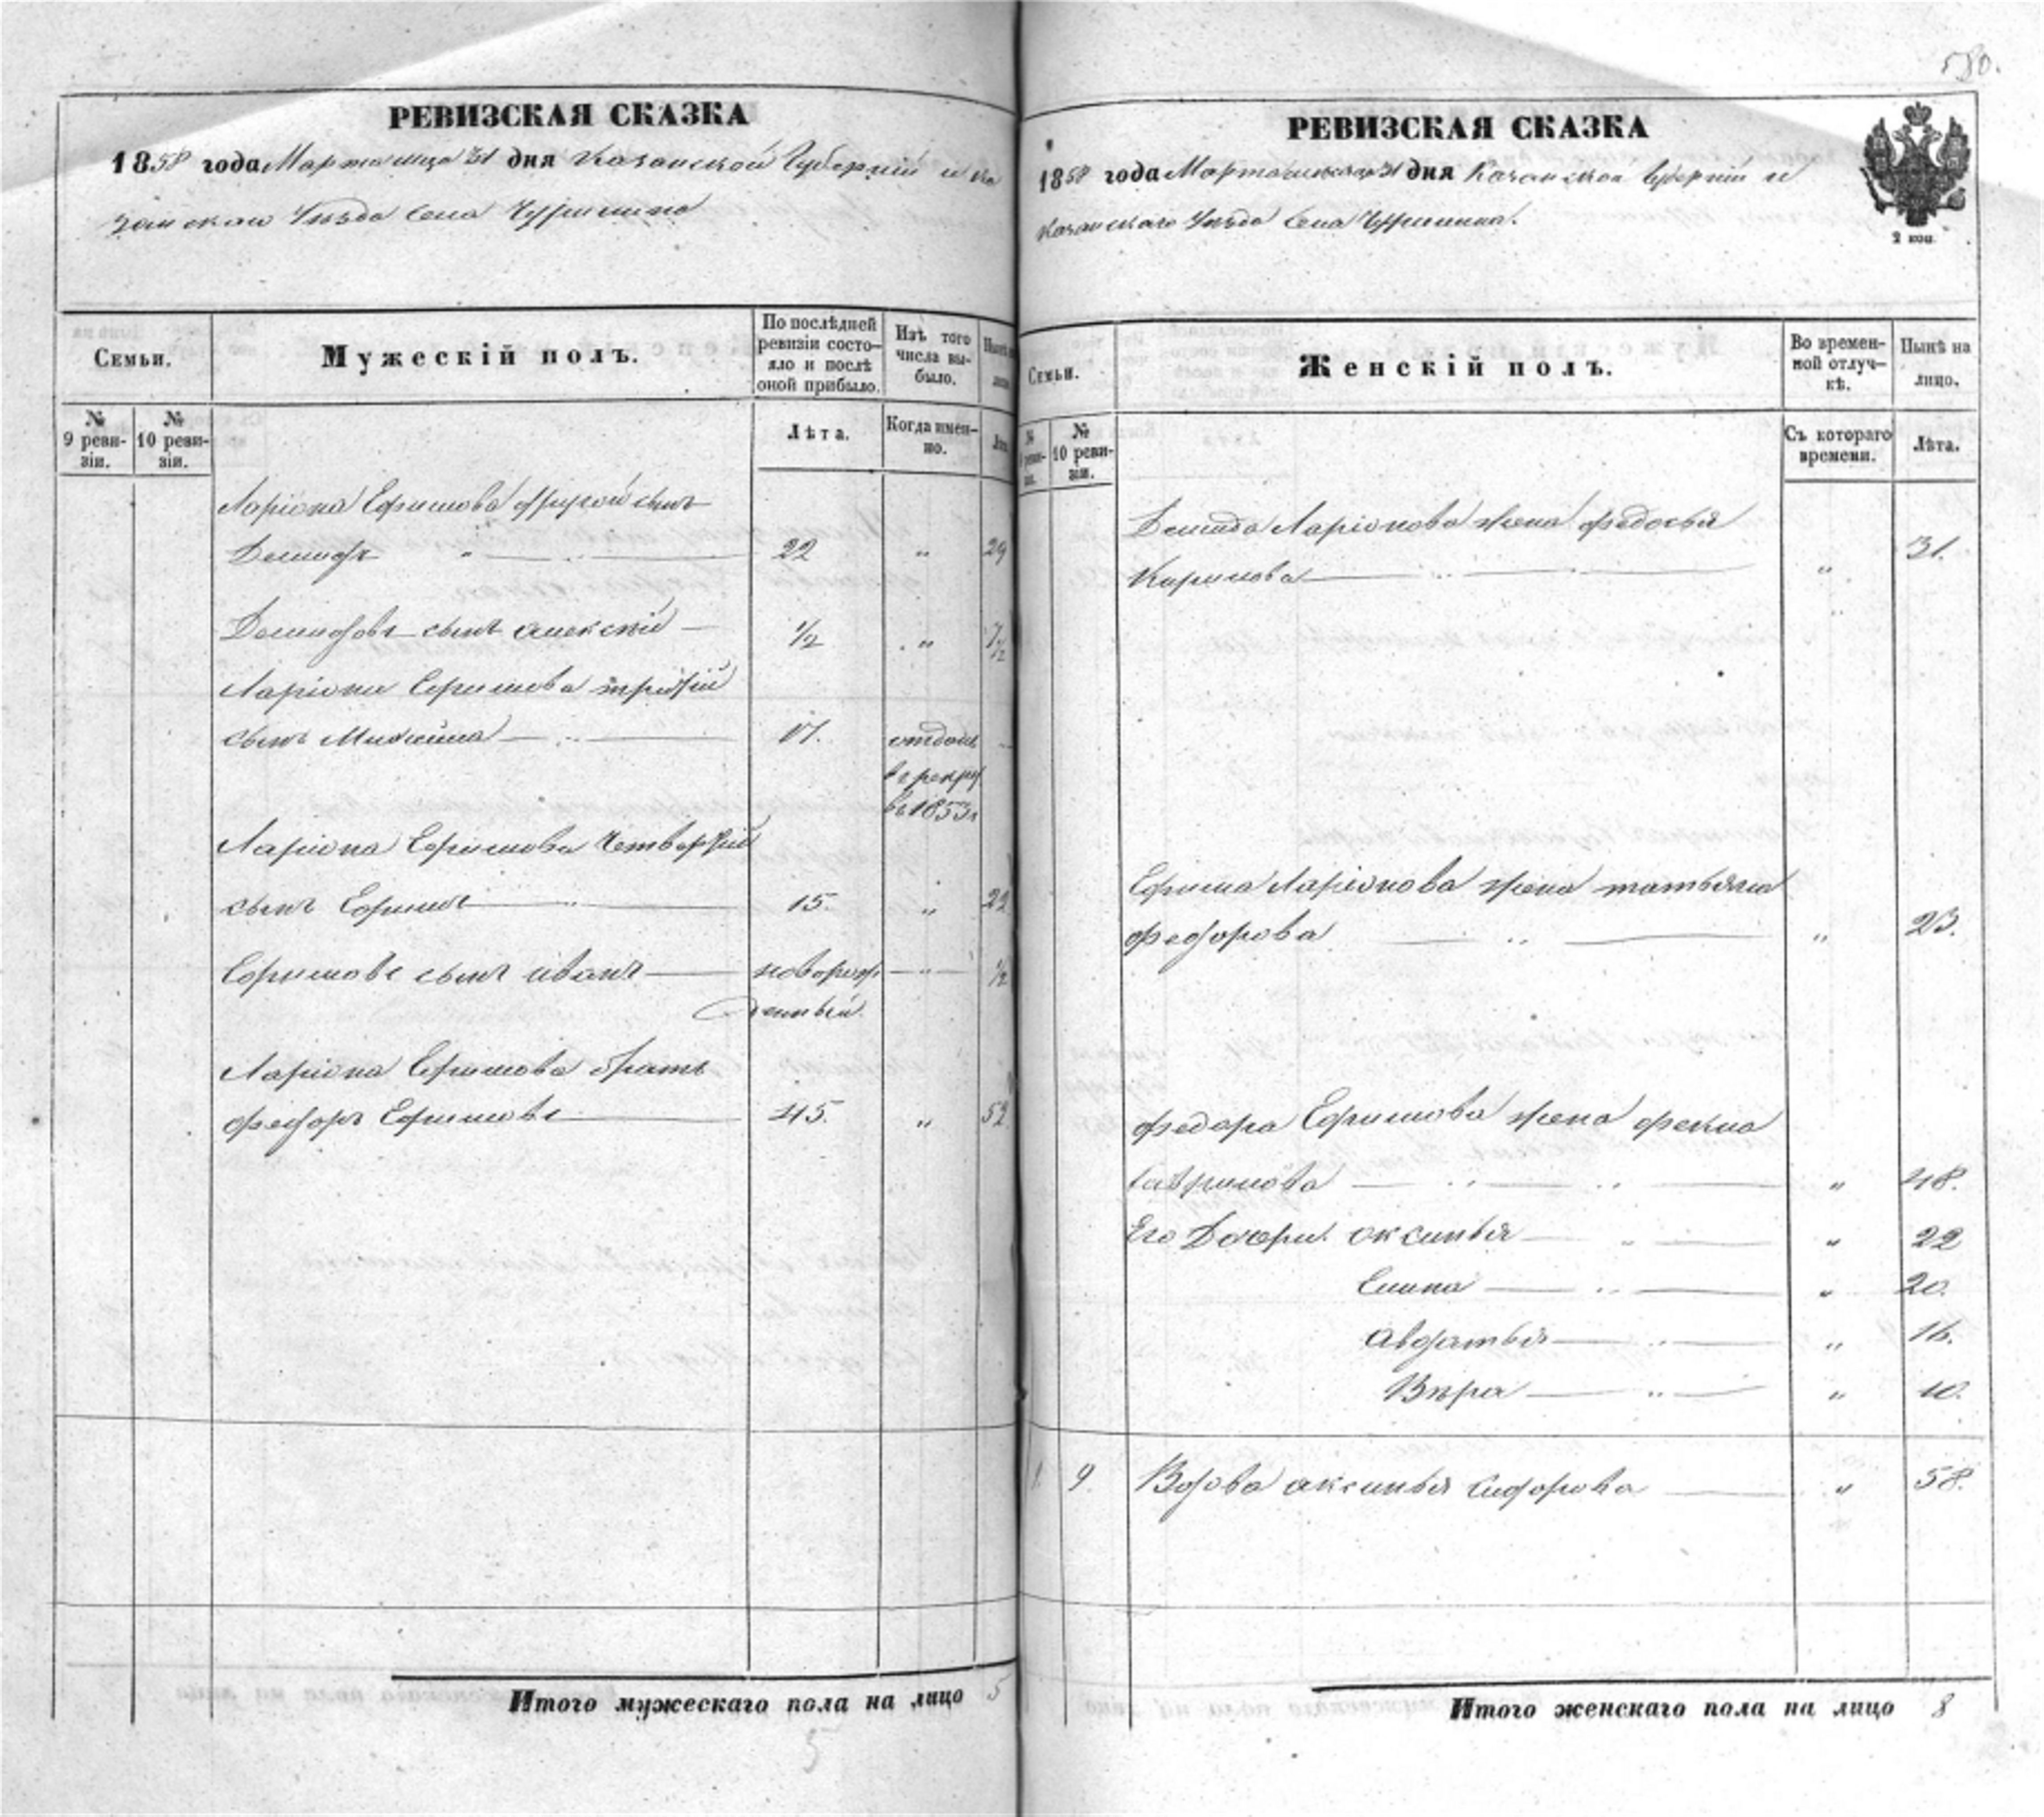 РЕВИЗСКАЯ СКАЗКА
1858 года Марта м-ца 31 дня Казанской Губерніи и Ка
занскаго Уѣзда Села
Семьи.
Мужескій полъ.
По послѣдней ревизіи состо-
яло и послѣ
оной прибыло.
Изъ того
числа вы-
было.
№
9 реви-
зіи.
№
10 реви-
зіи.
Лѣта.
Когда имен-
но.
Лѣта.
Ларіона Ефимова другой сынъ
Демидъ 22 " 29
Демидовъ сынъ алексѣй 1/2 " 7 1/2
Ларіона Ефимова третій
сынъ Михайла 17. отданъ
в рекру
въ 1853 г
Ларіона Ефимова Четвертый
сынъ Ефимъ 15. " 22
Ефимовъ сынъ иванъ новорож " 1/2
денный
Ларіона Ефимова братъ
федоръ Ефимовъ 45. " 52
Итого мужескаго пола на лицо 5
5
580.
РЕВИЗСКАЯ СКАЗКА
2 коп.
1858 года Марта месяца 31 дня Казанской Губерніи и
Казанскаго Уѣзда Села
Семьи.
Женскій полъ.
Во времен-
ной отлуч-
кѣ.
Нынѣ на
лицо.
№
№
10 реви-
зіи.
Съ котораго
времени.
Лѣта.
Демида Ларіонова жена федосья
Кирилова " 31.
Ефима Ларіонова жена татьяна
федорова " 23.
федора Ефимова жена фекла
Гаврилова " 48.
Его Дочери. оксинья " 22
Елина " 20.
Авдотья " 16.
Вѣра " 10.
9. Вдова аксинья сидорова " 58.
Итого женскаго пола на лицо 8